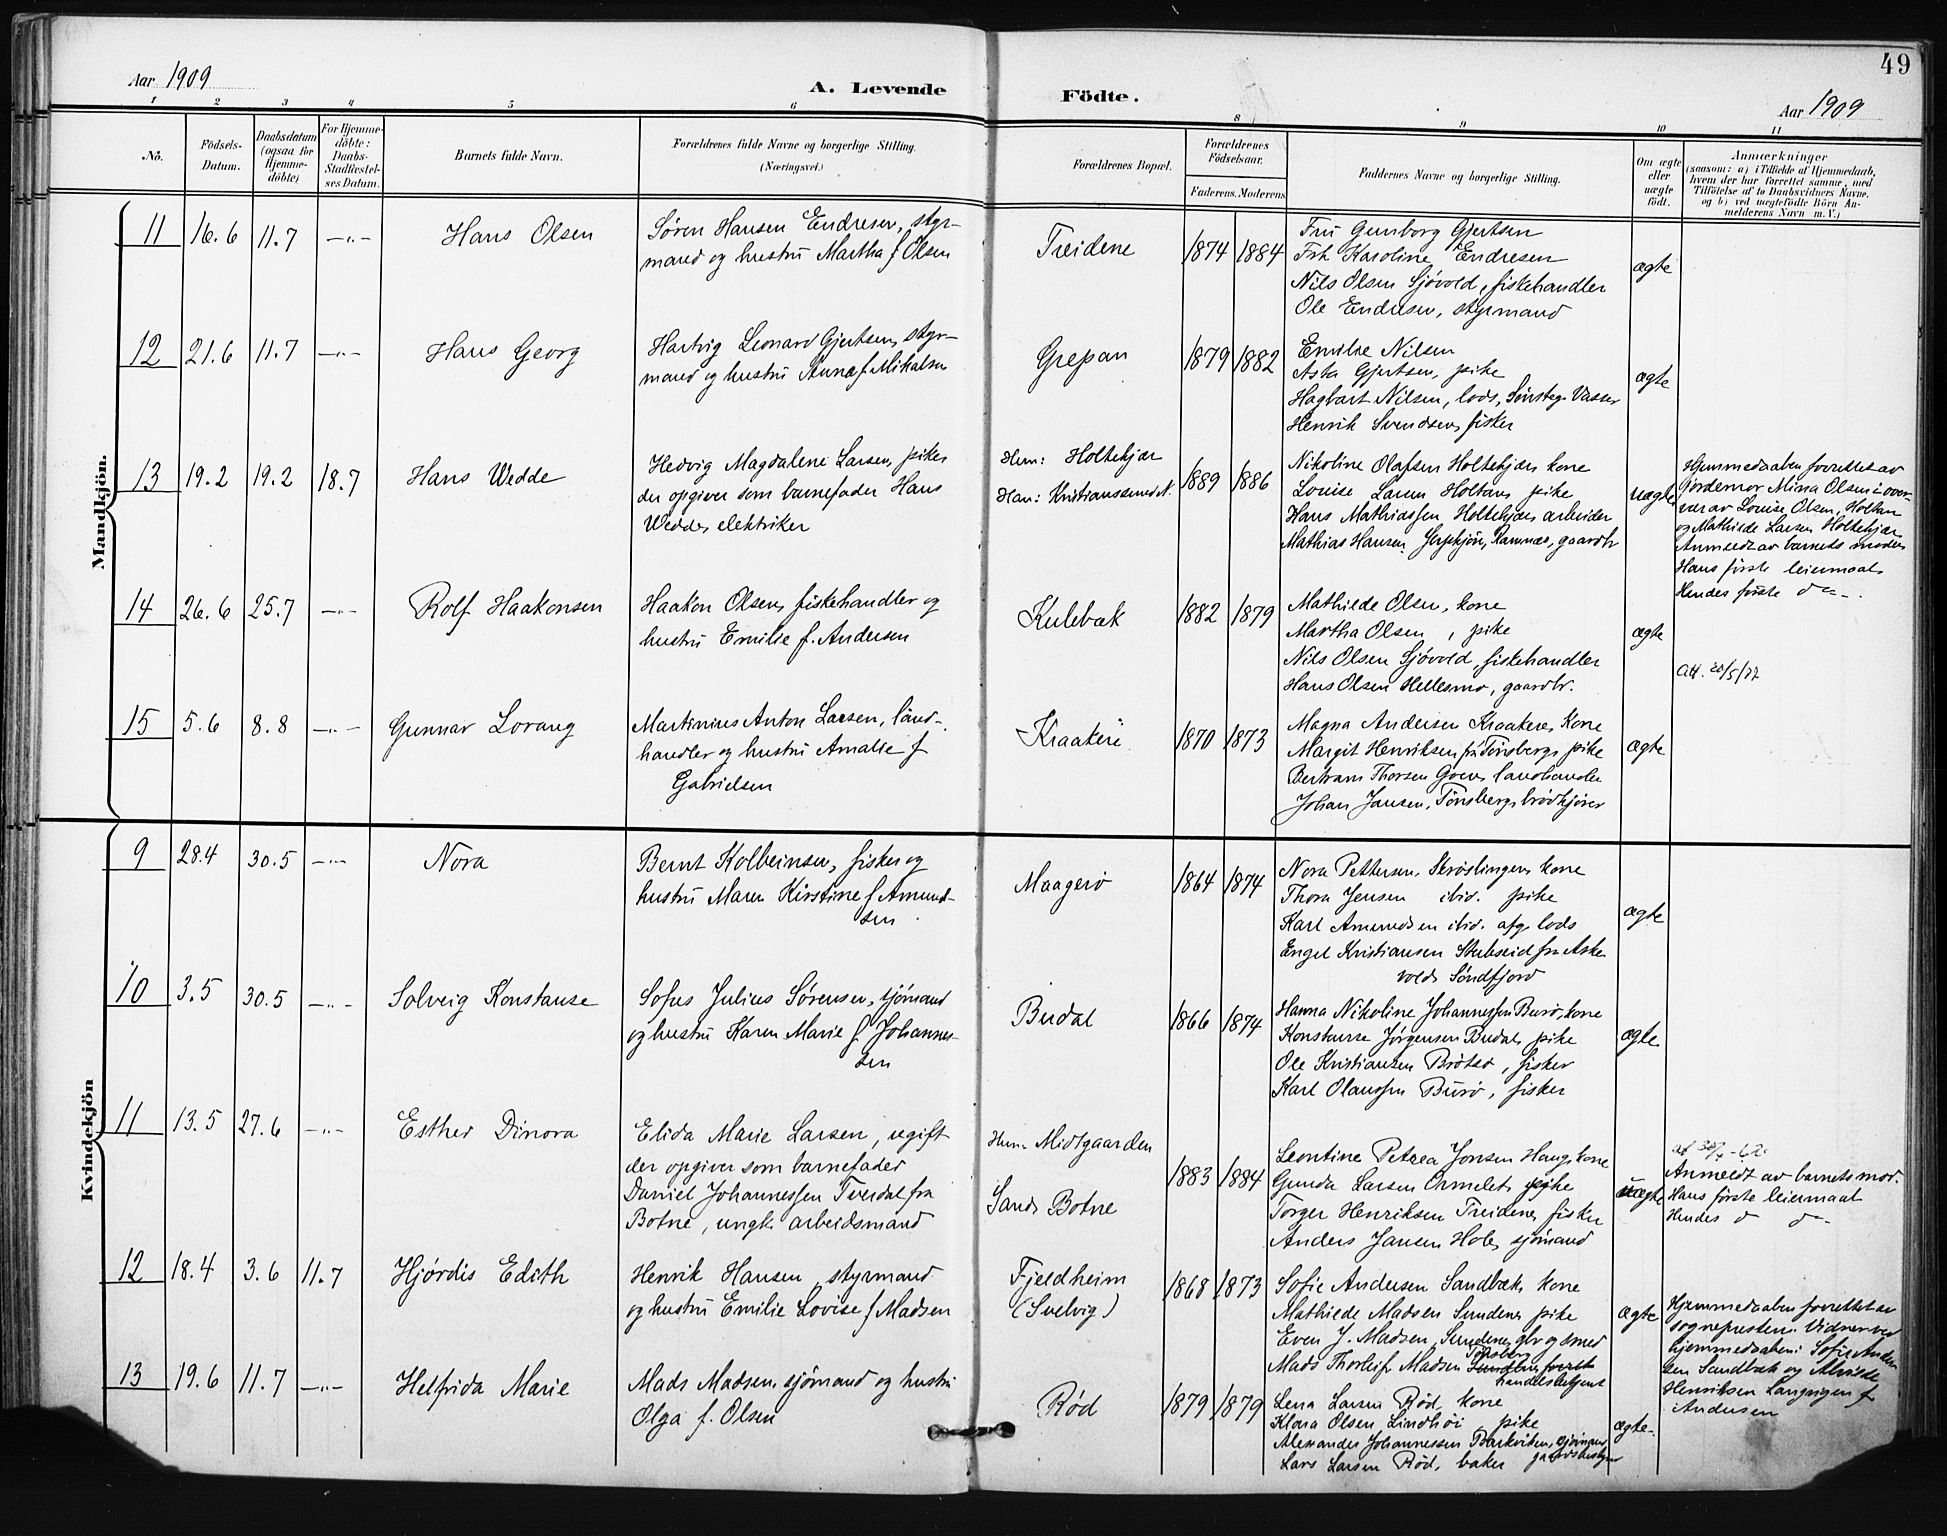 49
Aar 1909
A. Levende
Födte.
Aar 1909
1 2 3 4 5 6 8 9 10 11
No.
Födsels-
Datum.
Daabsdatum
(ogsaa for
Hjemme-
döbte)
For Hjemme-
döbte:
Daabs-
Stadfæstel-
ses Datum.
Barnets fulde Navn.
Forældrenes fulde Navne og borgerlige Stilling.
(Næringsvei.)
Forældrenes Bopæl.
Forældrenes
Födselsaar.
Faderens. Moderens
Faddernes Navne og borgerlige Stilling.
Om ægte
eller
uægte
födt.
Anmærkninger
(saasom: a) i Tilfælde af Hjemmedaab,
hvem der har forrettet samme, med
Tilföielse af to Daabsvidners Navne.
og b) ved uægtefödte Börn An-
melderens Navn m. V.)
Mandkjön.
11 16.6 11.7 —„— Hans Olsen
Søren Hansen Endresen, styr-
mand og hustru Martha f Olsen
Treidene 1874 1884
Fru Gunborg Gjertsen
Frk Karoline Endresen
Nils Olsen Sjøvold, fiskehandler
Ole Endresen, styrmand
ægte
12 21.6 11.7 —„— Hans Georg
Hartvig Leonard Gjertsen, styr-
mand og hustru Anna f Mikalsen
Grepan 1879 1882
Emilie Nilsen
Asta Gjertsen, pike
Hagbart Nilsen, lods, Vasser
Henrik Svendsen, fisker
ægte
13 19.2 19.2 18.7 Hans Wedde
Hedvig Magdalene Larsen, pike,
der opgiver som barnefader Hans
Wedde, elektriker
Hun: Holtekjær
Han: Kristianssund N.
1889 1886
Nikoline Olafsen Holtekjær kone
Louise Larsen Holtan, pike
Hans Mathiassen Holtekjær arbeider
Mathias Hansen, Ramnæs, gaardbr
uægte
Hjemmedaaben forrettet av
jordemor Mina Olsen i over-
vær av Louise Olsen, Holtan
og Mathilde Larsen Holtekjær
Anmeldt av barnets moder
Hans første leiermaal
Hendes første do
14 26.6 25.7 —„— Rolf Haakonsen
Haakon Olsen, fiskehandler og
hustru Emilie f. Andersen
Kulebæk 1882 1879
Mathilde Olsen, kone
Martha Olsen, pike
Nils Olsen Sjøvold, fiskehandler
Hans Olsen Hellesmo, gaardbr.
ægte
Att.
15 5.6 8.8 —„— Gunnar Lorang
Martinius Anton Larsen, land-
handler og hustru Amalie f
Gabrielsen
Kraakere 1870 1873
Magna Andersen Kraakere, kone
Margit Henriksen fra Tønsberg, pike
Bertram Thorsen Goen, landhandler
Johan Jansen, Tønsberg, brødkjører
ægte
Kvindekjön
9 28.4 30.5 —„— Nora
Bernt Kolbeinsen, fisker og
hustru Maren Kirstine f Amund-
sen
Maagerø 1864 1874
Nora Pettersen, Skrøslingen, kone
Thora Jensen ibid. pike
Karl Amundsen ibid. afg. lods
Engel Kristiansen Stubseid fra Aske
vold, Søndfjord
ægte
10 3.5 30.5 —„— Solveig Konstanse
Sofus Julius Sørensen, sjømand
og hustru Karen Marie f Johannes-
sen
Budal 1866 1874
Hanna Nikoline Johannessen Burø, kone
Konstanse Jørgensen Budal, pike
Ole Kristiansen Brøtsø, fisker
Karl Olaussen Burø, fisker
ægte
11 13.5 27.6 —„— Esther Dinora
Elida Marie Larsen, ugift
der opgiver som barnefader
Daniel Johannessen Tverdal fra
Botne, ungk. arbeidsmand
Hun: Midtgaarden
Sand, Botne
1883 1884
Leontine Petrea Jonsen Haug, kone
Gunda Larsen Ormelet, pike
Torger Henriksen Treidene, fisker
Anders Jansen Hole, sjømand
uægte
Anmeldt av barnets mor.
Hans første leiermaal
Hendes do do
12 18.4 3.6 11.7 Hjørdis Edith
Henrik Hansen, styrmand
og hustru Emilie Lovise f Madsen
Fjeldheim
(Svelvig)
1868 1873
Sofie Andersen Sandbæk, kone
Mathilde Madsen Sundene, pike
Even J. Madsen, Sundene, gbr og smed
Mads Thorleif Madsen Tønsberg
handelsbetjent
ægte
Hjemmedaaben forrettet av
sognepresten. Vidner ved
hjemmedaaben: Sofie Ander
sen Sandbæk og Alvilde
Henriksen Langvigen f
Andersen
13 19.6 11.7 —„— Helfrida Marie
Mads Madsen, sjømand og hustru
Olga f. Olsen
Rød 1879 1879
Lena Larsen Rød, kone
Klara Olsen Lindhøi, pike
Alexander Johannessen Barkviken, sjømand
Lars Larsen Rød, baker
ægte